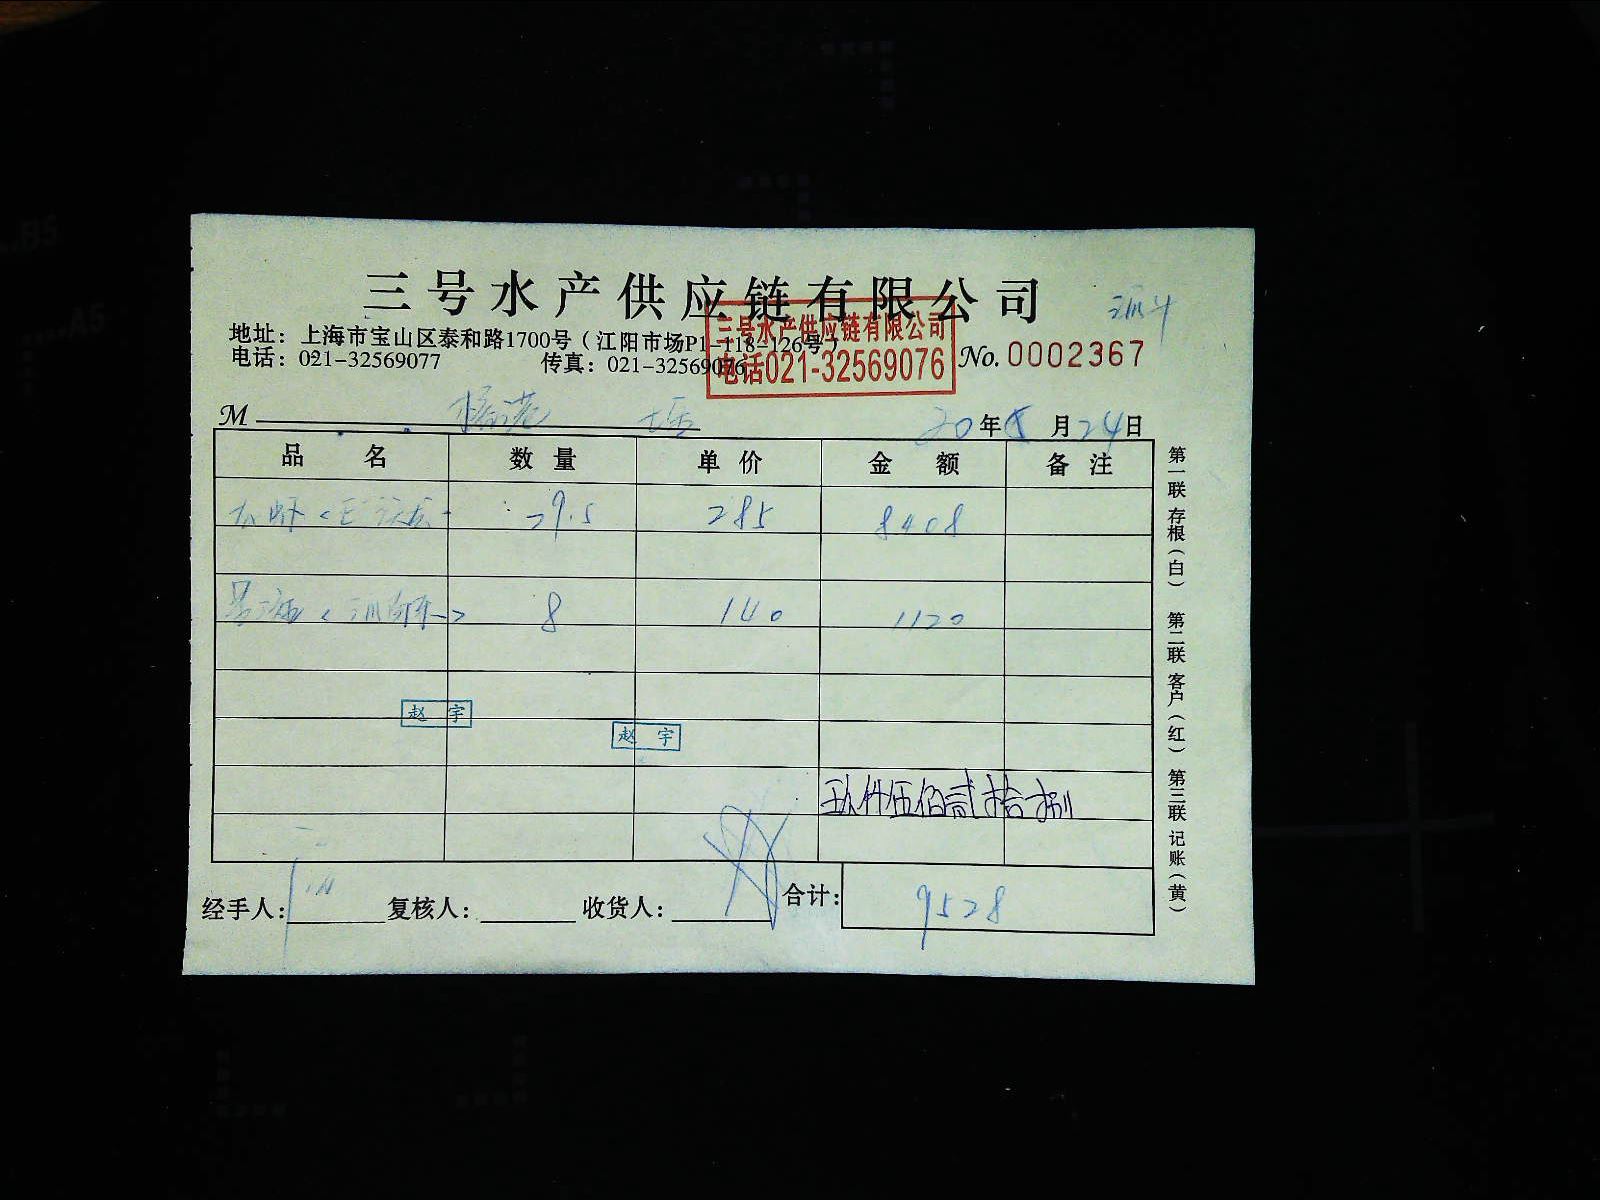 三号水产供应链有限公司
地址：上海市宝山区泰和路1700号（江阳市场P1-118-126号）
电话：021-32569077 传真：021-32569076
三号水产供应链有限公司
电话021-32569076
No. 0002367
M
20年8月24日
品名 数量 单价 金额 备注
大虾 29.5 285 8408
8 140 1120
赵宇
赵宇
玖仟伍佰贰拾捌
经手人： 复核人： 收货人： 合计： 9528
第一联 存根（白） 第二联 客户（红） 第三联 记账（黄）
B5
A5